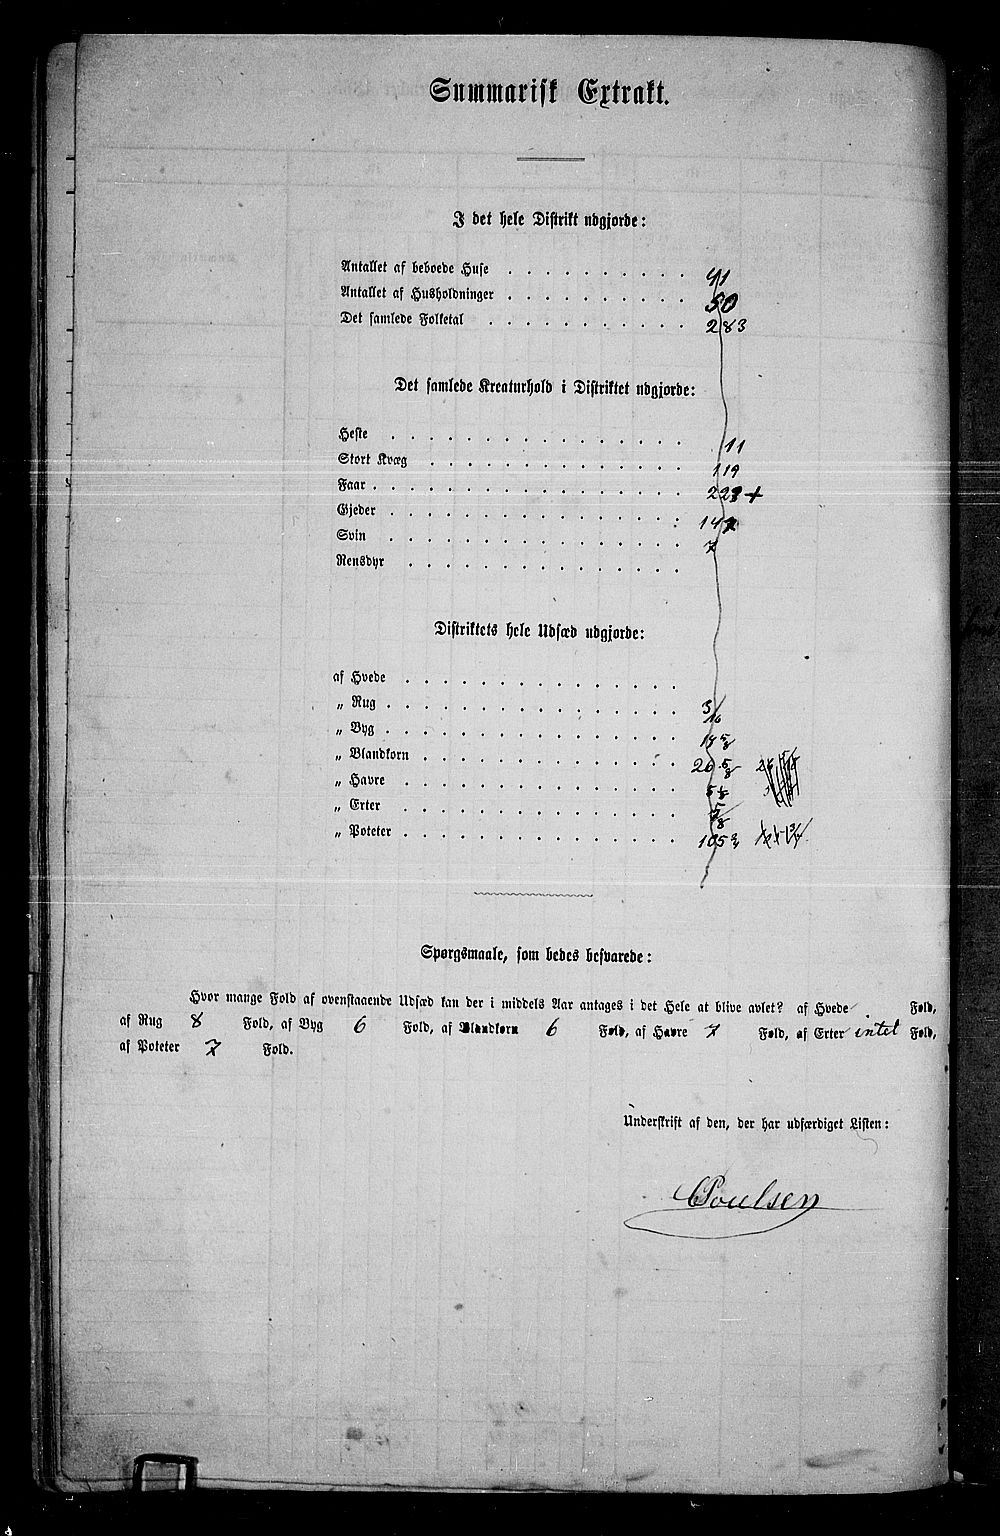 Summarisk Extrakt.
I det hele Distrikt udgjorde:
Antallet af beboede Huse . . . . . . . . . . 41
Antallet af Husholdninger . . . . . . . . . . 50
Det samlede Folketal . . . . . . . . . . . 283
Det samlede Kreaturhold i Distriktet udgjorde:
Heste . . . . . . . . . . . . . . . . 11
Stort Kvæg . . . . . . . . . . . . . . 119
Faar . . . . . . . . . . . . . . . . .
Gjeder . . . . . . . . . . . . . . . .
Svin . . . . . . . . . . . . . . . . 7
Rensdyr . . . . . . . . . . . . . . .
Distriktets hele Udsæd udgjorde:
af Hvede . . . . . . . . . . . . . . .
„ Rug . . . . . . . . . . . . . . . . 3/16
„ Byg . . . . . . . . . . . . . . . .
„ Blandkorn . . . . . . . . . . . . . . 26 5/8
„ Havre . . . . . . . . . . . . . . .
„ Erter . . . . . . . . . . . . . . . 5/8
„ Poteter . . . . . . . . . . . . . . 105 3/4
Spørgsmaale, som bedes besvarede:
Hvor mange Fold af ovenstaaende Udsæd kan der i middels Aar antages i det Hele at blive avlet? af Hvede Fold,
af Rug 8 Fold, af Byg 6 Fold, af Blandkorn 6 Fold, af Havre 7 Fold, af Erter intet Fold,
af Poteter 7 Fold.
Underskrift af den, der har udfærdiget Listen:
Poulsen